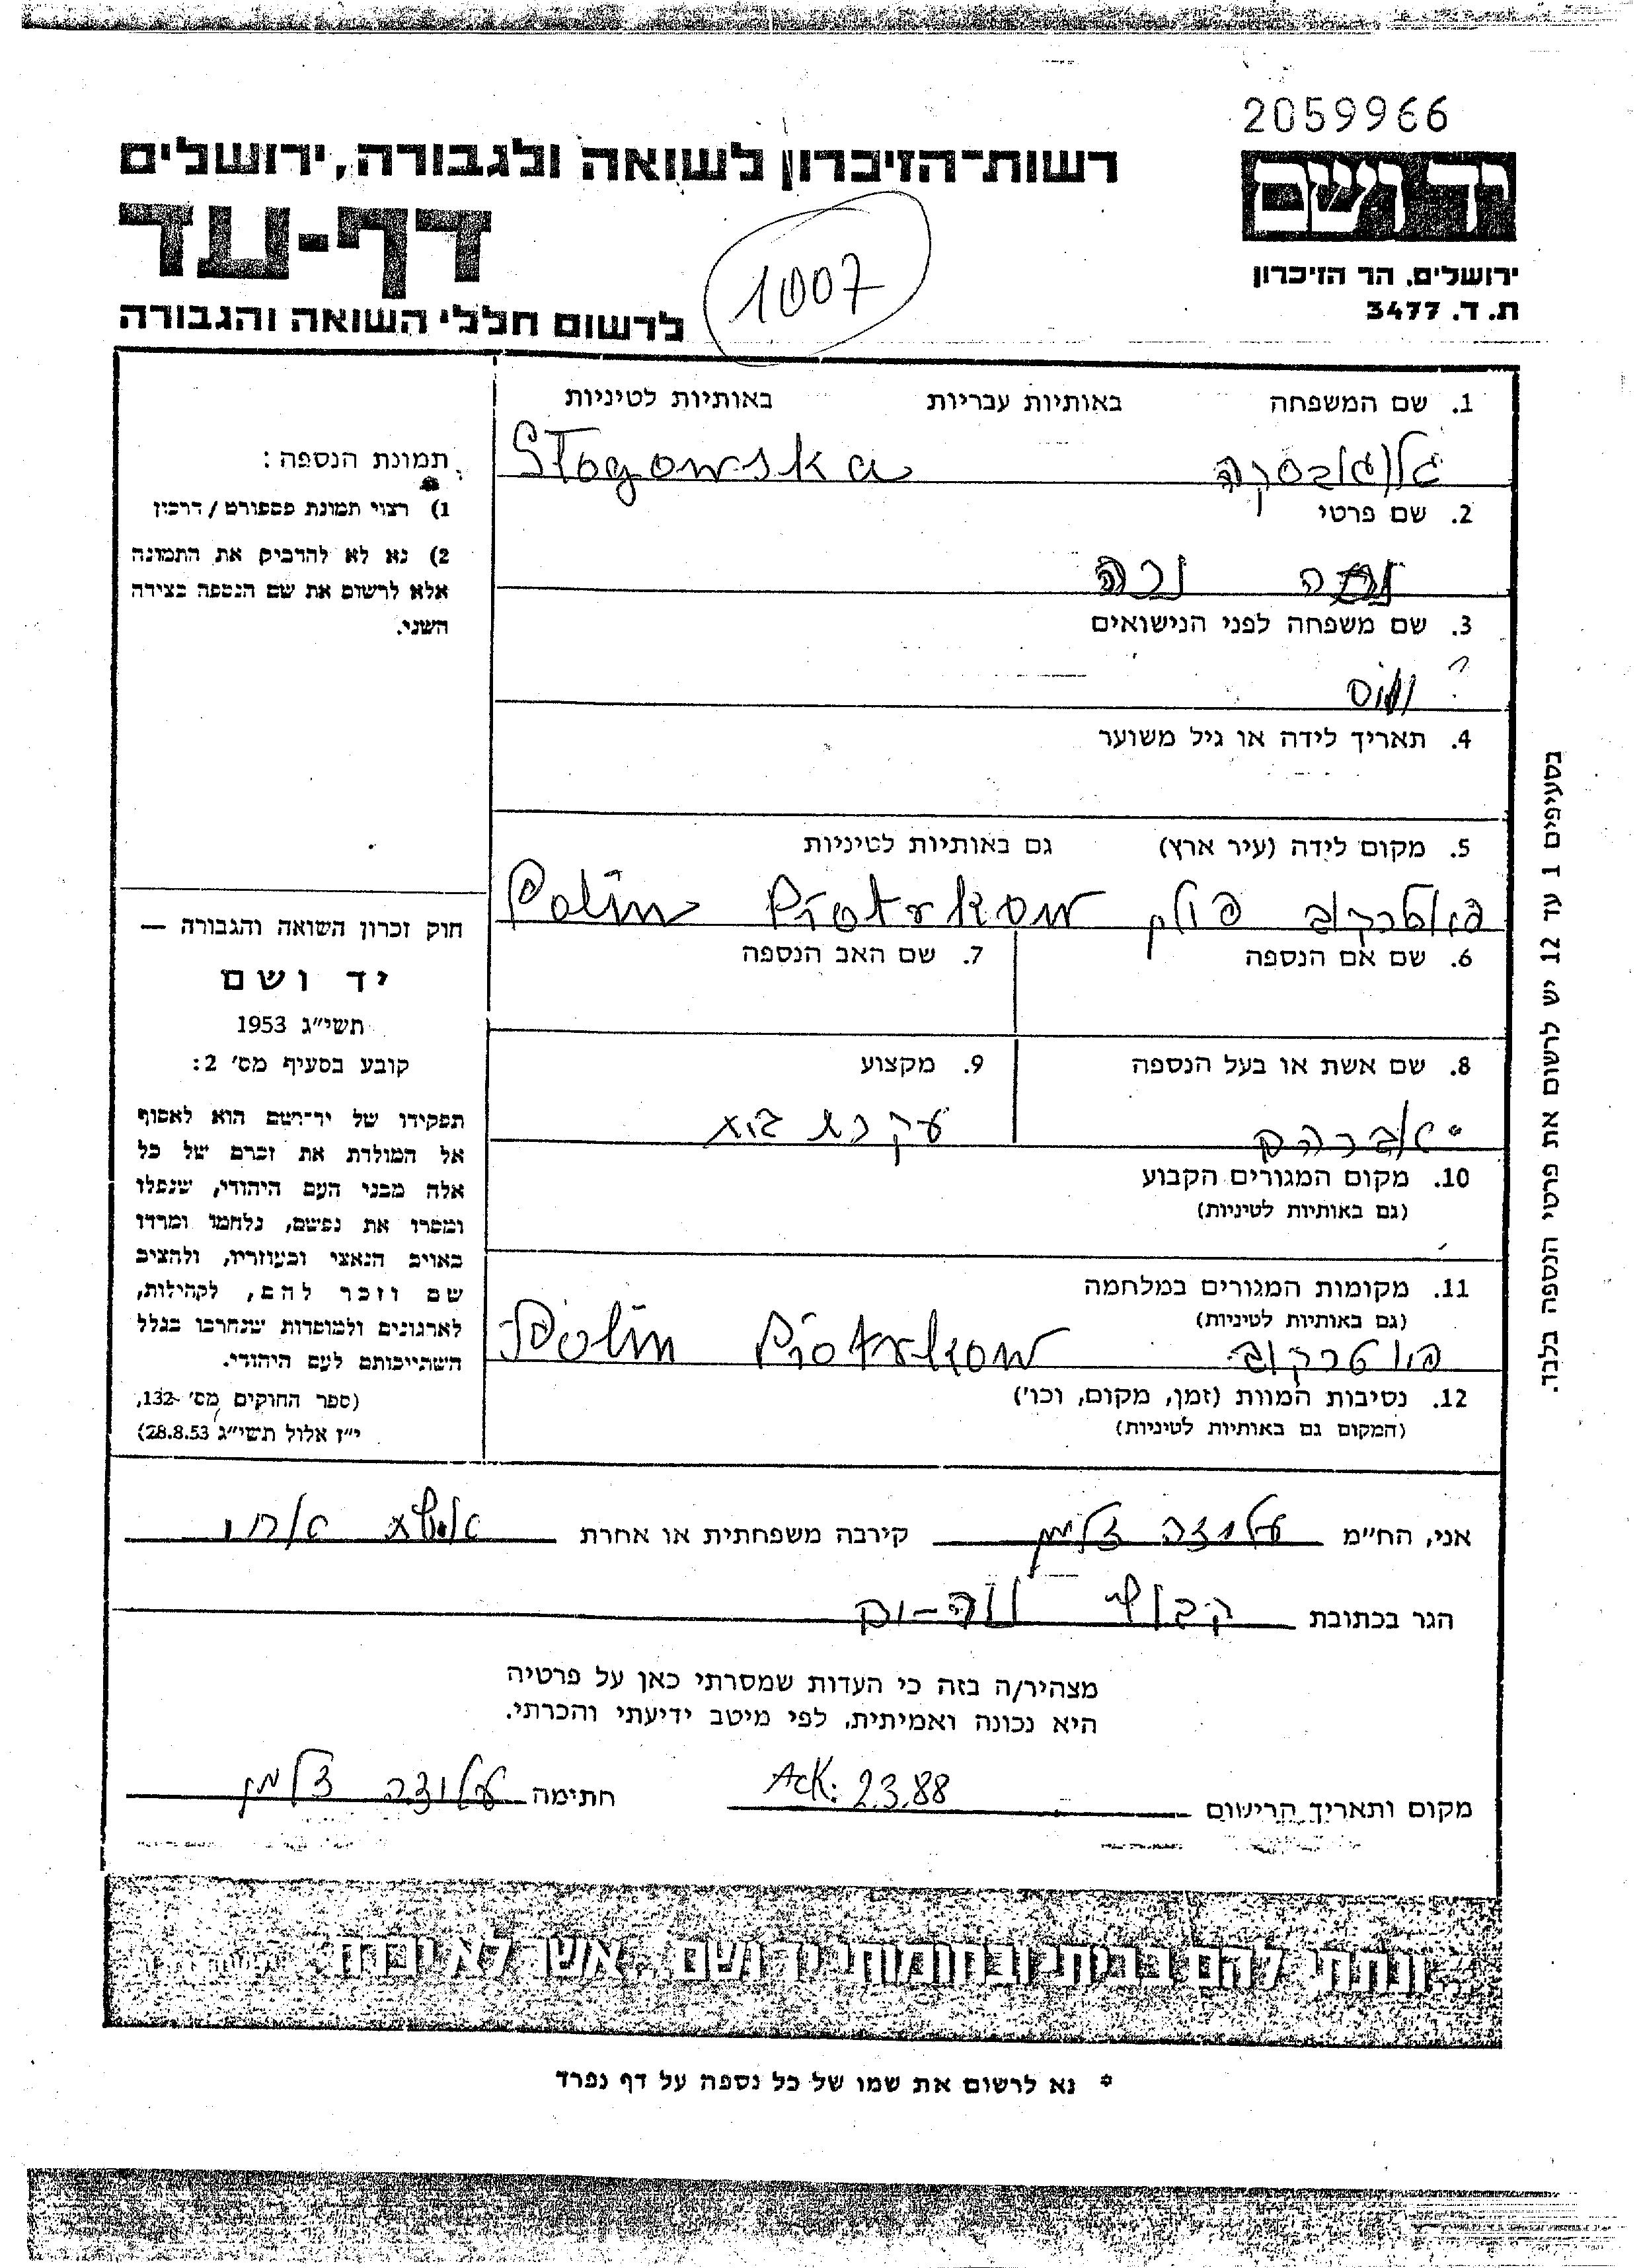 2059966
יד ושם
רשות־הזיכרון לשואה ולגבורה, ירושלים
דף-עד
1007
ירושלים, הר הזיכרון
ת. ד. 3477
לרשום חללי השואה והגבורה
1. שם המשפחה באותיות עבריות באותיות לטיניות
Stogowska
2. שם פרטי
3. שם משפחה לפני הנישואים
?
4. תאריך לידה או גיל משוער
5. מקום לידה (עיר ארץ) גם באותיות לטיניות
פיוטרקוב פולין Piotrkow Polin
6. שם אם הנספה
7. שם האב הנספה
8. שם אשת או בעל הנספה
אברהם
9. מקצוע
עקרת בית
10. מקום המגורים הקבוע
(גם באותיות לטיניות)
11. מקומות המגורים במלחמה
(גם באותיות לטיניות)
פיוטרקוב Piotrkow Polin
12. נסיבות המוות (זמן, מקום, וכו')
(המקום גם באותיות לטיניות)
תמונת הנספה:
1) רצוי תמונת פספורט/דרכון
2) נא לא להדביק את התמונה
אלא לרשום את שם הנספה בצידה
השני.
חוק זכרון השואה והגבורה —
יד ושם
תשי״ג 1953
קובע בסעיף מס' 2:
תפקידו של יד־ושם הוא לאסוף
אל המולדת את זכרם של כל
אלה מבני העם היהודי, שנפלו
ומסרו את נפשם, נלחמו ומרדו
באויב הנאצי ובעוזריו, ולהציב
שם וזכר להם, לקהילות,
לארגונים ולמוסדות שנחרבו בגלל
השתייכותם לעם היהודי.
(ספר החוקים מס' 132,
י״ז אלול תשי״ג 28.8.53)
בסעיפים 1 עד 12 יש לרשום את פרטי הנספה בלבד.
אני, הח״מ זלמן קירבה משפחתית או אחרת אשת אחי
הגר בכתובת קבוץ
מצהיר/ה בזה כי העדות שמסרתי כאן על פרטיה
היא נכונה ואמיתית, לפי מיטב ידיעתי והכרתי.
מקום ותאריך הרישום Ack: 2.3.88 חתימה זלמן
״...ונתתי להם בביתי ובחומותי יד ושם... אשר לא יכרת״
* נא לרשום את שמו של כל נספה על דף נפרד